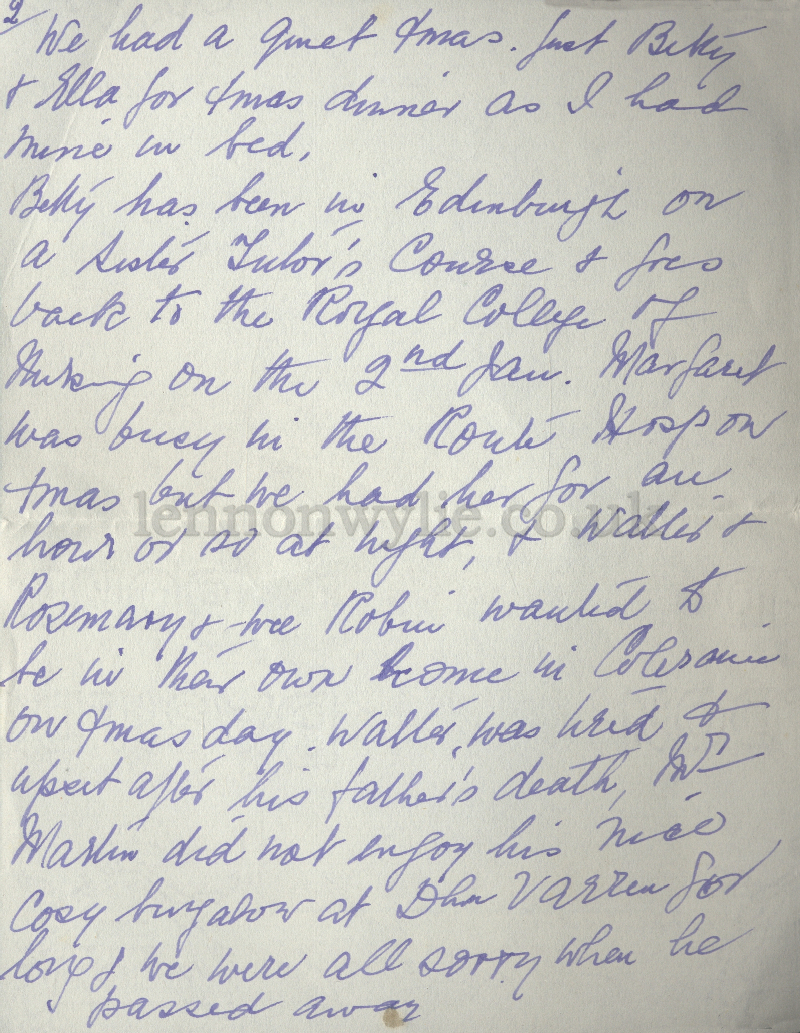 2
We had a quiet Xmas. Just Betty
& Ella for Xmas dinner as I had
mine in bed.
Betty has been in Edinburgh on
a Sister Tutor's Course & goes
back to the Royal College of
Nursing on the 2nd Jan. Margaret
was busy in the Route Hosp on
Xmas but we had her for an
lennonwylie.co.uk
hour or so at night, & Walter &
Rosemary & wee Robin wanted to
be in their own home in Coleraine
on Xmas day. Walter was tired &
upset after his father's death, Mr
Martin did not enjoy his nice
cosy bungalow at Dhu Varren for
long & we were all sorry when he
passed away